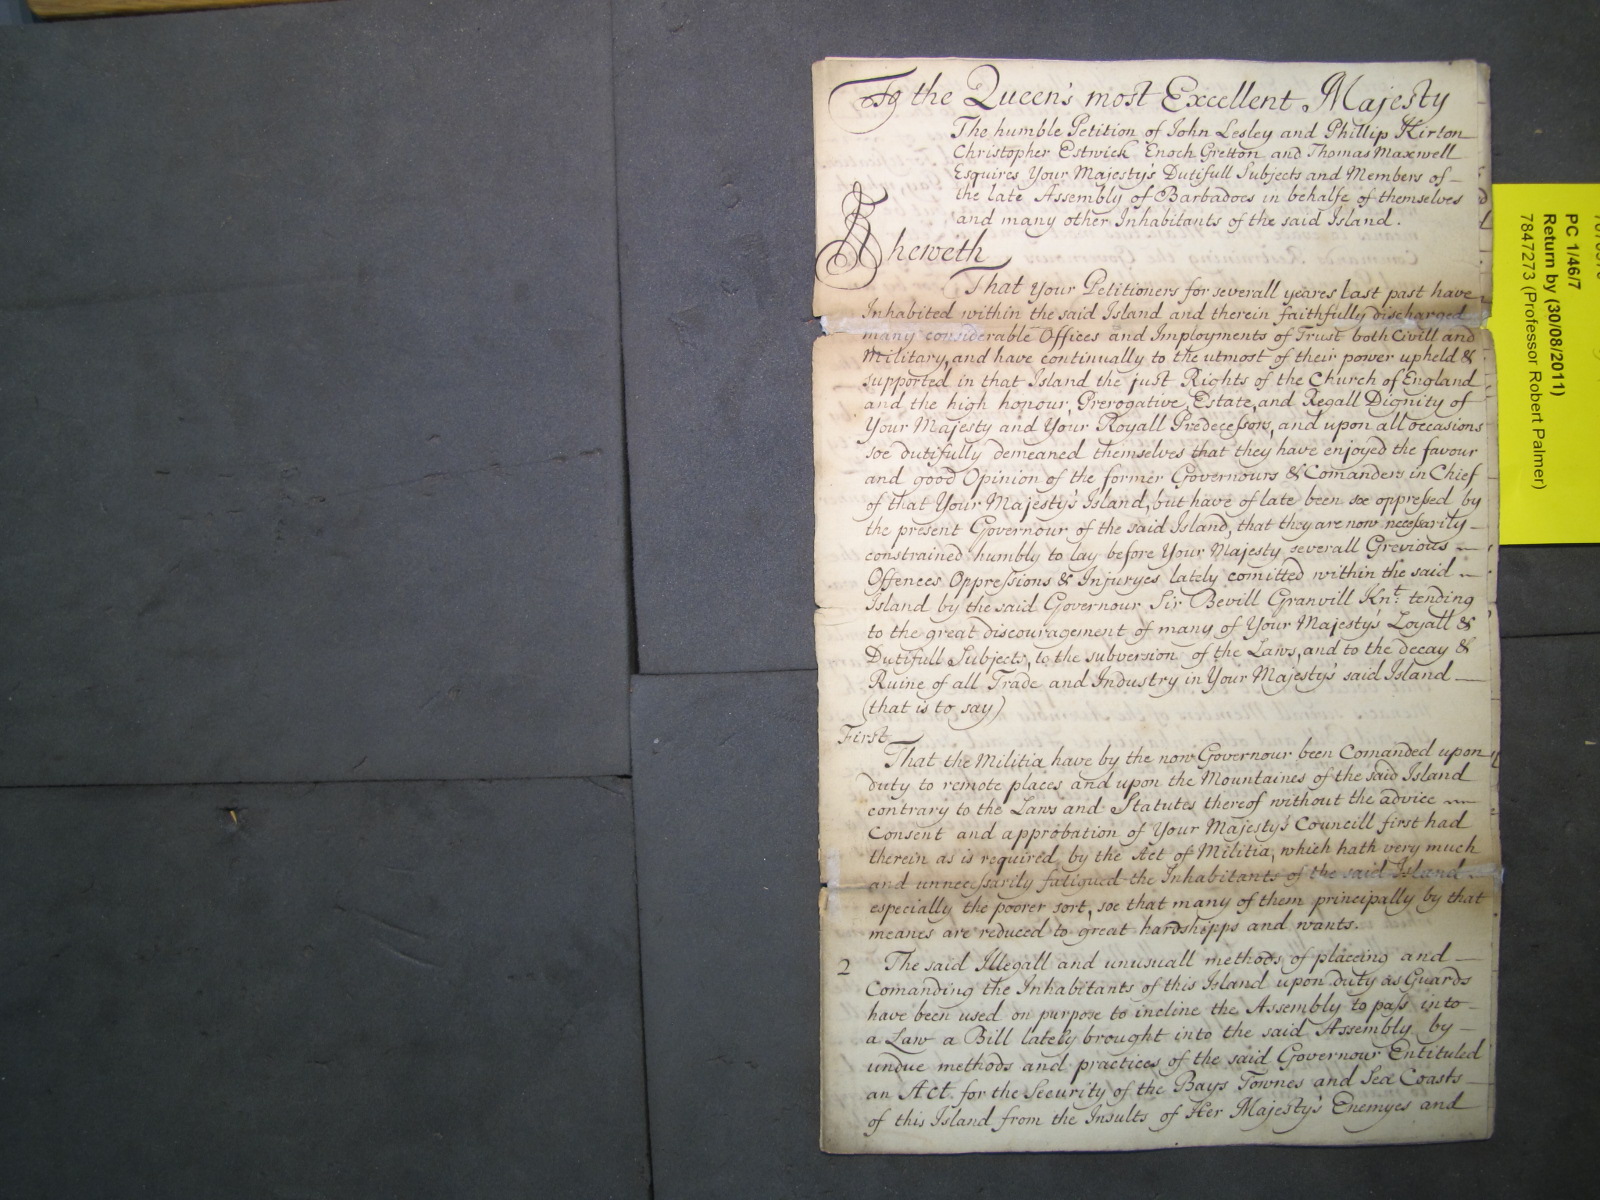 To the Queen's most Excellent Majesty
The humble Petition of John Lesley and Phillip Kirton
Christopher Estwick Enoch Gretton and Thomas Maxwell
Esquires Your Majesty's Dutifull Subjects and Members of
the late Assembly of Barbadoes in behalfe of themselves
and many other Inhabitants of the said Island.
Sheweth
That Your Petitioners for severall yeares last past have
Inhabited within the said Island and therein faithfully discharged
many considerable Offices and Imployments of Trust both Civill and
Military, and have continually to the utmost of their power upheld &
supported in that Island the just Rights of the Church of England
and the high honour, Prerogative, Estate, and Regall Dignity of
Your Majesty and Your Royall Predecessors, and upon all occasions
soe dutifully demeaned themselves that they have enjoyed the favour
and good Opinion of the former Governours & Comanders in Chief
of that Your Majesty's Island, but have of late been soe oppressed by
the present Governour of the said Island, that they are now necessarily
constrained humbly to lay before Your Majesty severall Grevious
Offences Oppressions & Injuryes lately comitted within the said
Island by the said Governour Sir Bevill Granvill Knt: tending
to the great discouragement of many of Your Majesty's Loyall &
Dutifull Subjects, to the subversion of the Laws, and to the decay &
Ruine of all Trade and Industry in Your Majesty's said Island
(that is to say)
First
That the Militia have by the now Governour been Comanded upon
duty to remote places and upon the Mountaines of the said Island
contrary to the Laws and Statutes thereof without the advice
Consent and approbation of Your Majesty's Councill first had
therein as is required by the Act of Militia, which hath very much
and unnecessarily fatigued the Inhabitants of the said Island.
especially the poorer sort, soe that many of them principally by that
meanes are reduced to great hardshipps and wants.
2 The said Illegall and unusuall methods of placeing and
Comanding the Inhabitants of this Island upon duty as Guards
have been used on purpose to incline the Assembly to pass into
a Law a Bill lately brought into the said Assembly by
undue methods and practices of the said Governour Entituled
an Act for the Security of the Bays Townes and Sea Coasts
of this Island from the Insults of Her Majesty's Enemyes and
PC 1/46/7
Return by (30/08/2011)
7847273 (Professor Robert Palmer)